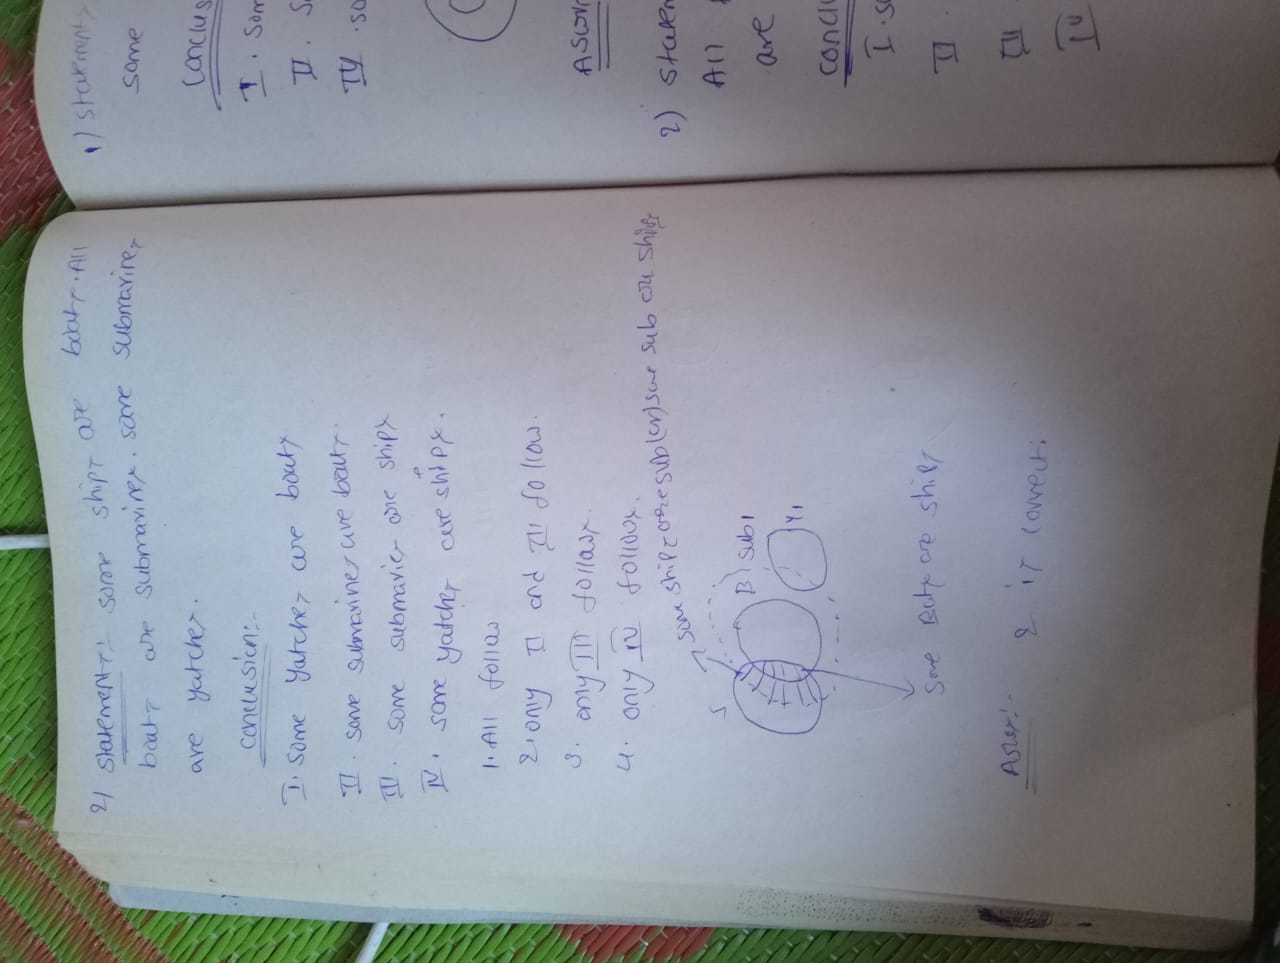 2) Statement:- some ships are boats. All
boats are submarines. some submarines
are yatches.
conclusion:-
I. Some yatches are boats
II. some submarines are boats.
III. some submaries are ships
IV. some yatches are ships.
1. All follow
2. only II and III follow.
3. only III follows.
4. only IV follows.
some ships are sub (or) some sub are ships
S
B
sub1
Y1
some Boats are ships
Answer:- 2 is correct.
1) Statements
some
conclus
I. som
II. s
IV. so
2) statem
All
are
conclu
I. so
II.
III
IV